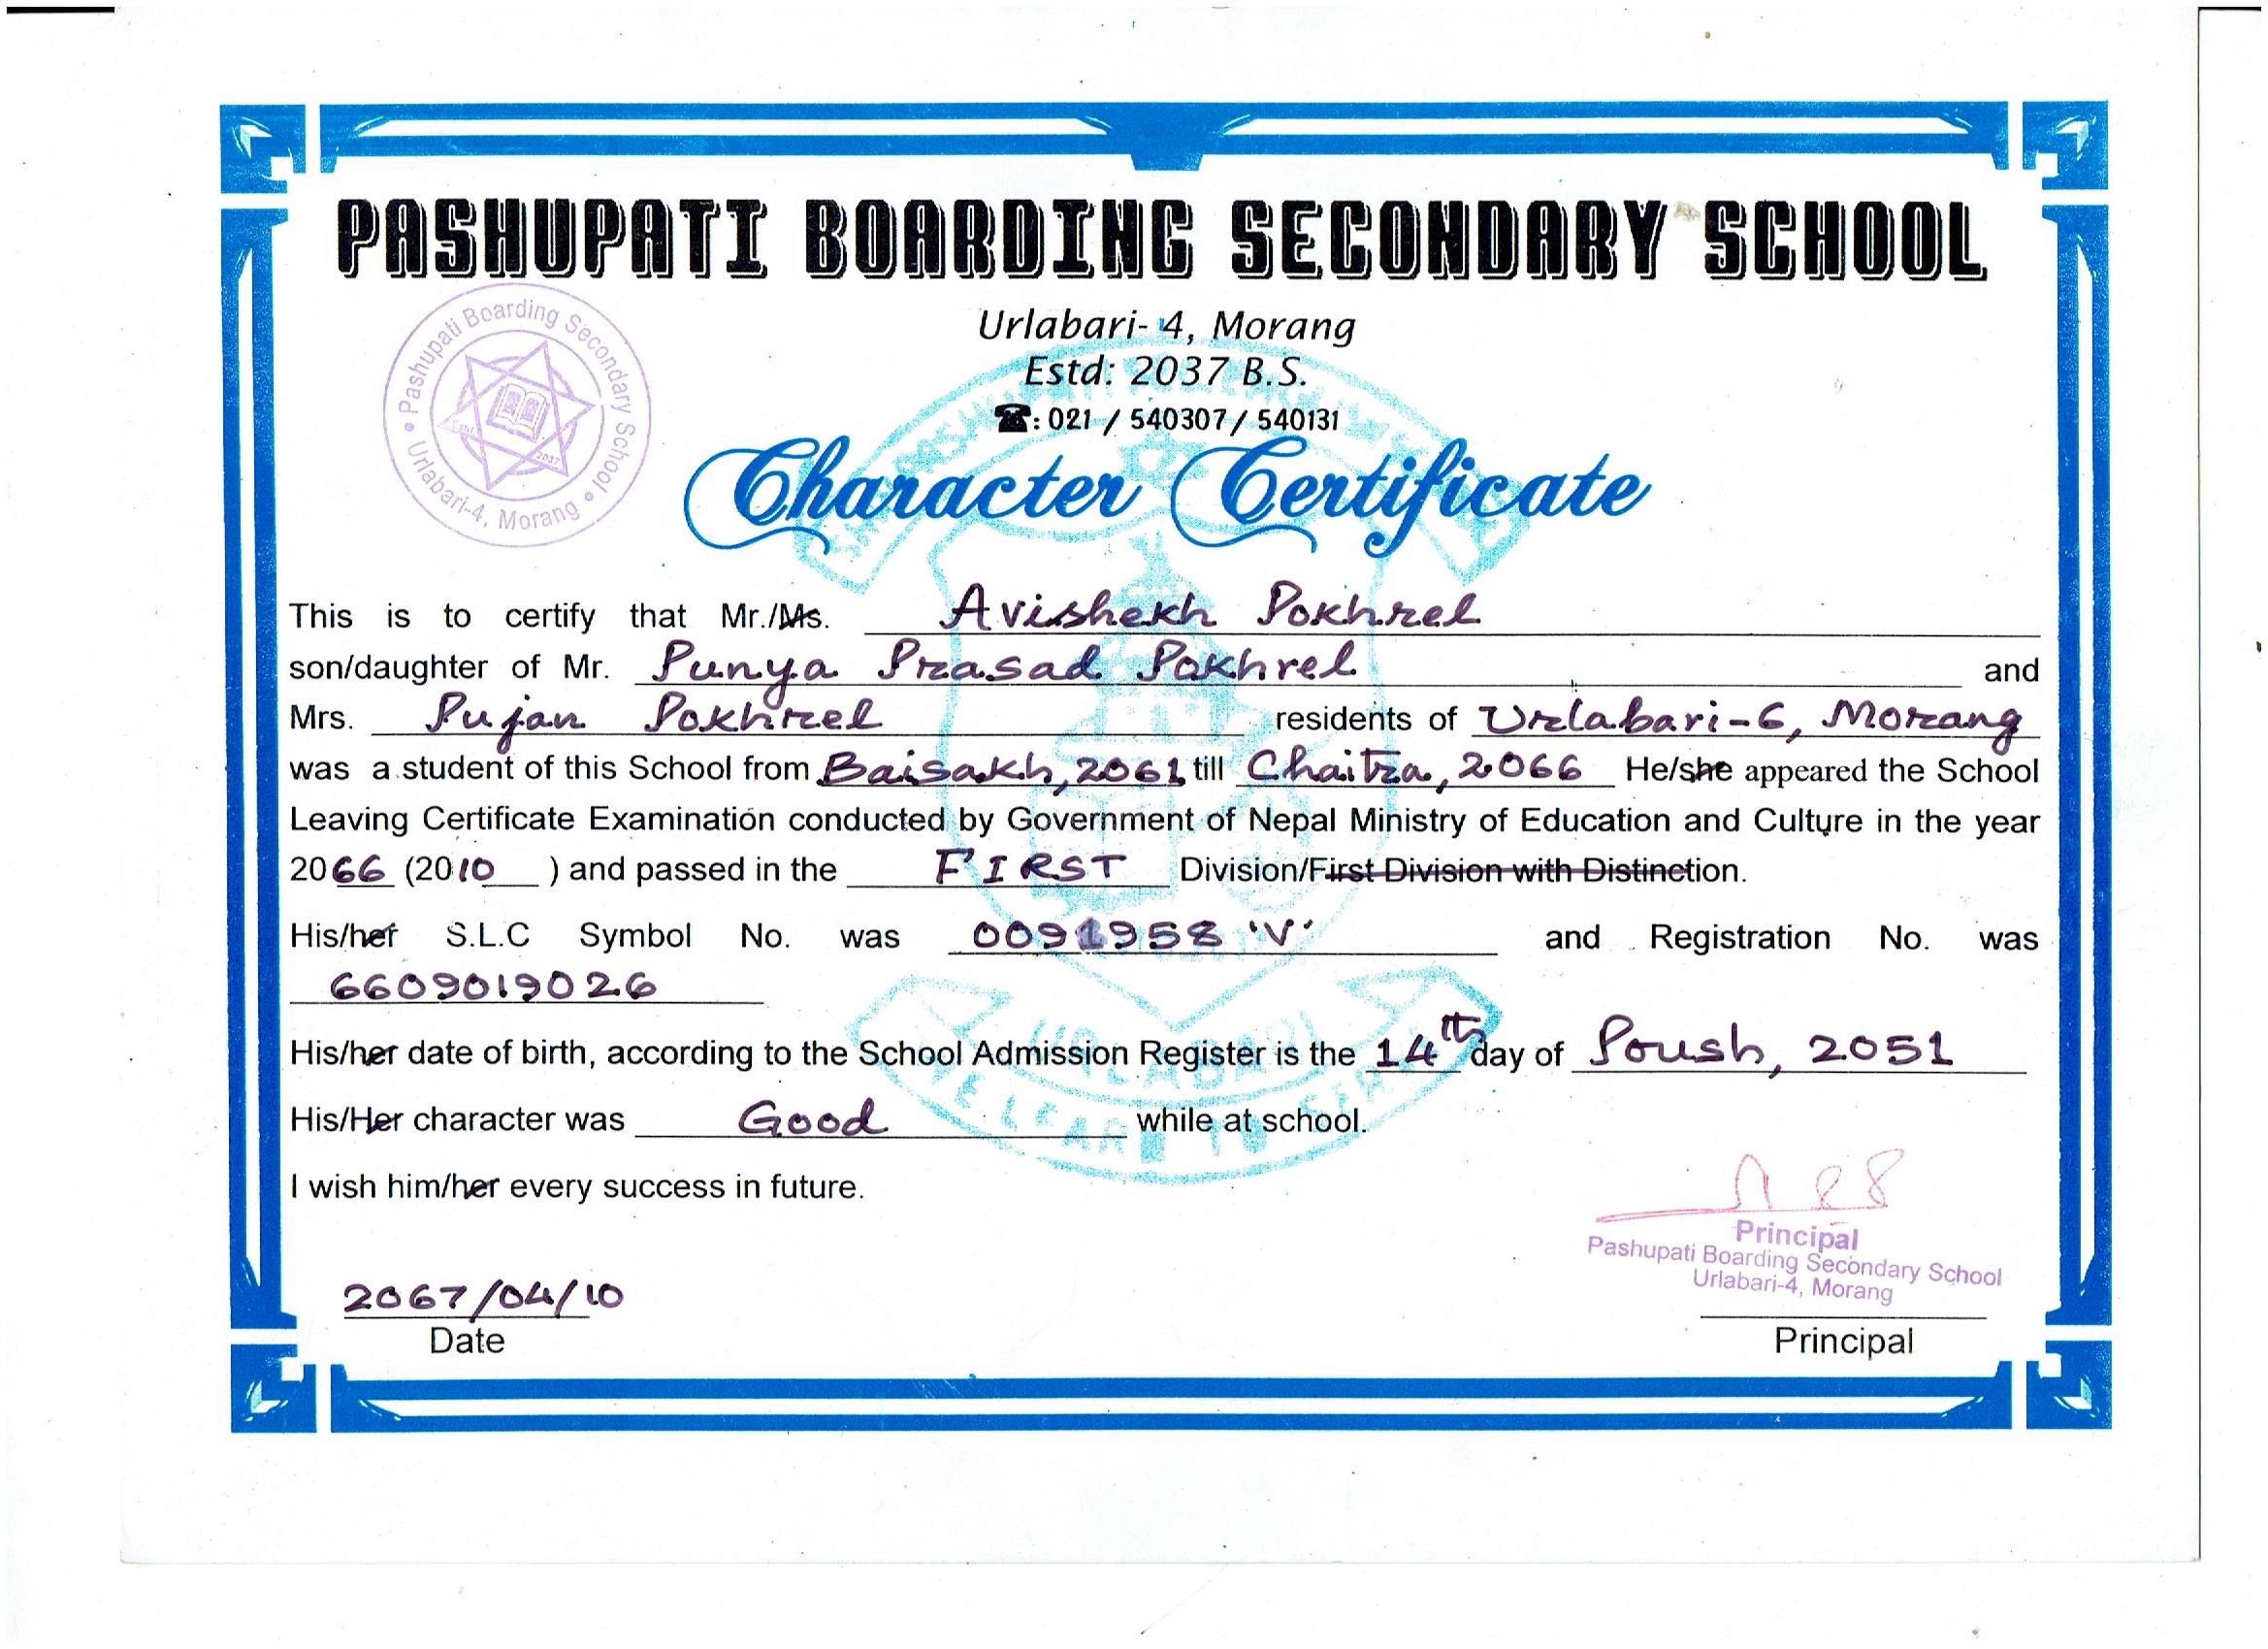 PASHUPATI BOARDING SECONDARY SCHOOL
Urlabari- 4, Morang
Estd: 2037 B.S.
☎: 021 / 540307 / 540131
Pashupati Boarding Secondary School
Urlabari-4, Morang
Estd. 2037
Character Certificate
This is to certify that Mr./Ms. Avishekh Pokhrel
son/daughter of Mr. Punya Prasad Pokhrel and
Mrs. Pujan Pokhrel residents of Urlabari-6, Morang
was a student of this School from Baisakh, 2061 till Chaitra, 2066 He/she appeared the School
Leaving Certificate Examination conducted by Government of Nepal Ministry of Education and Culture in the year
2066 (2010 ) and passed in the FIRST Division/First Division with Distinction.
His/her S.L.C Symbol No. was 0091958 'V' and Registration No. was
6609019026
His/her date of birth, according to the School Admission Register is the 14th day of Poush, 2051
His/Her character was Good while at school.
I wish him/her every success in future.
URLABARI
WE LEARN TO SERVE
Principal
Pashupati Boarding Secondary School
Urlabari-4, Morang
2067/04/10
Date
Principal